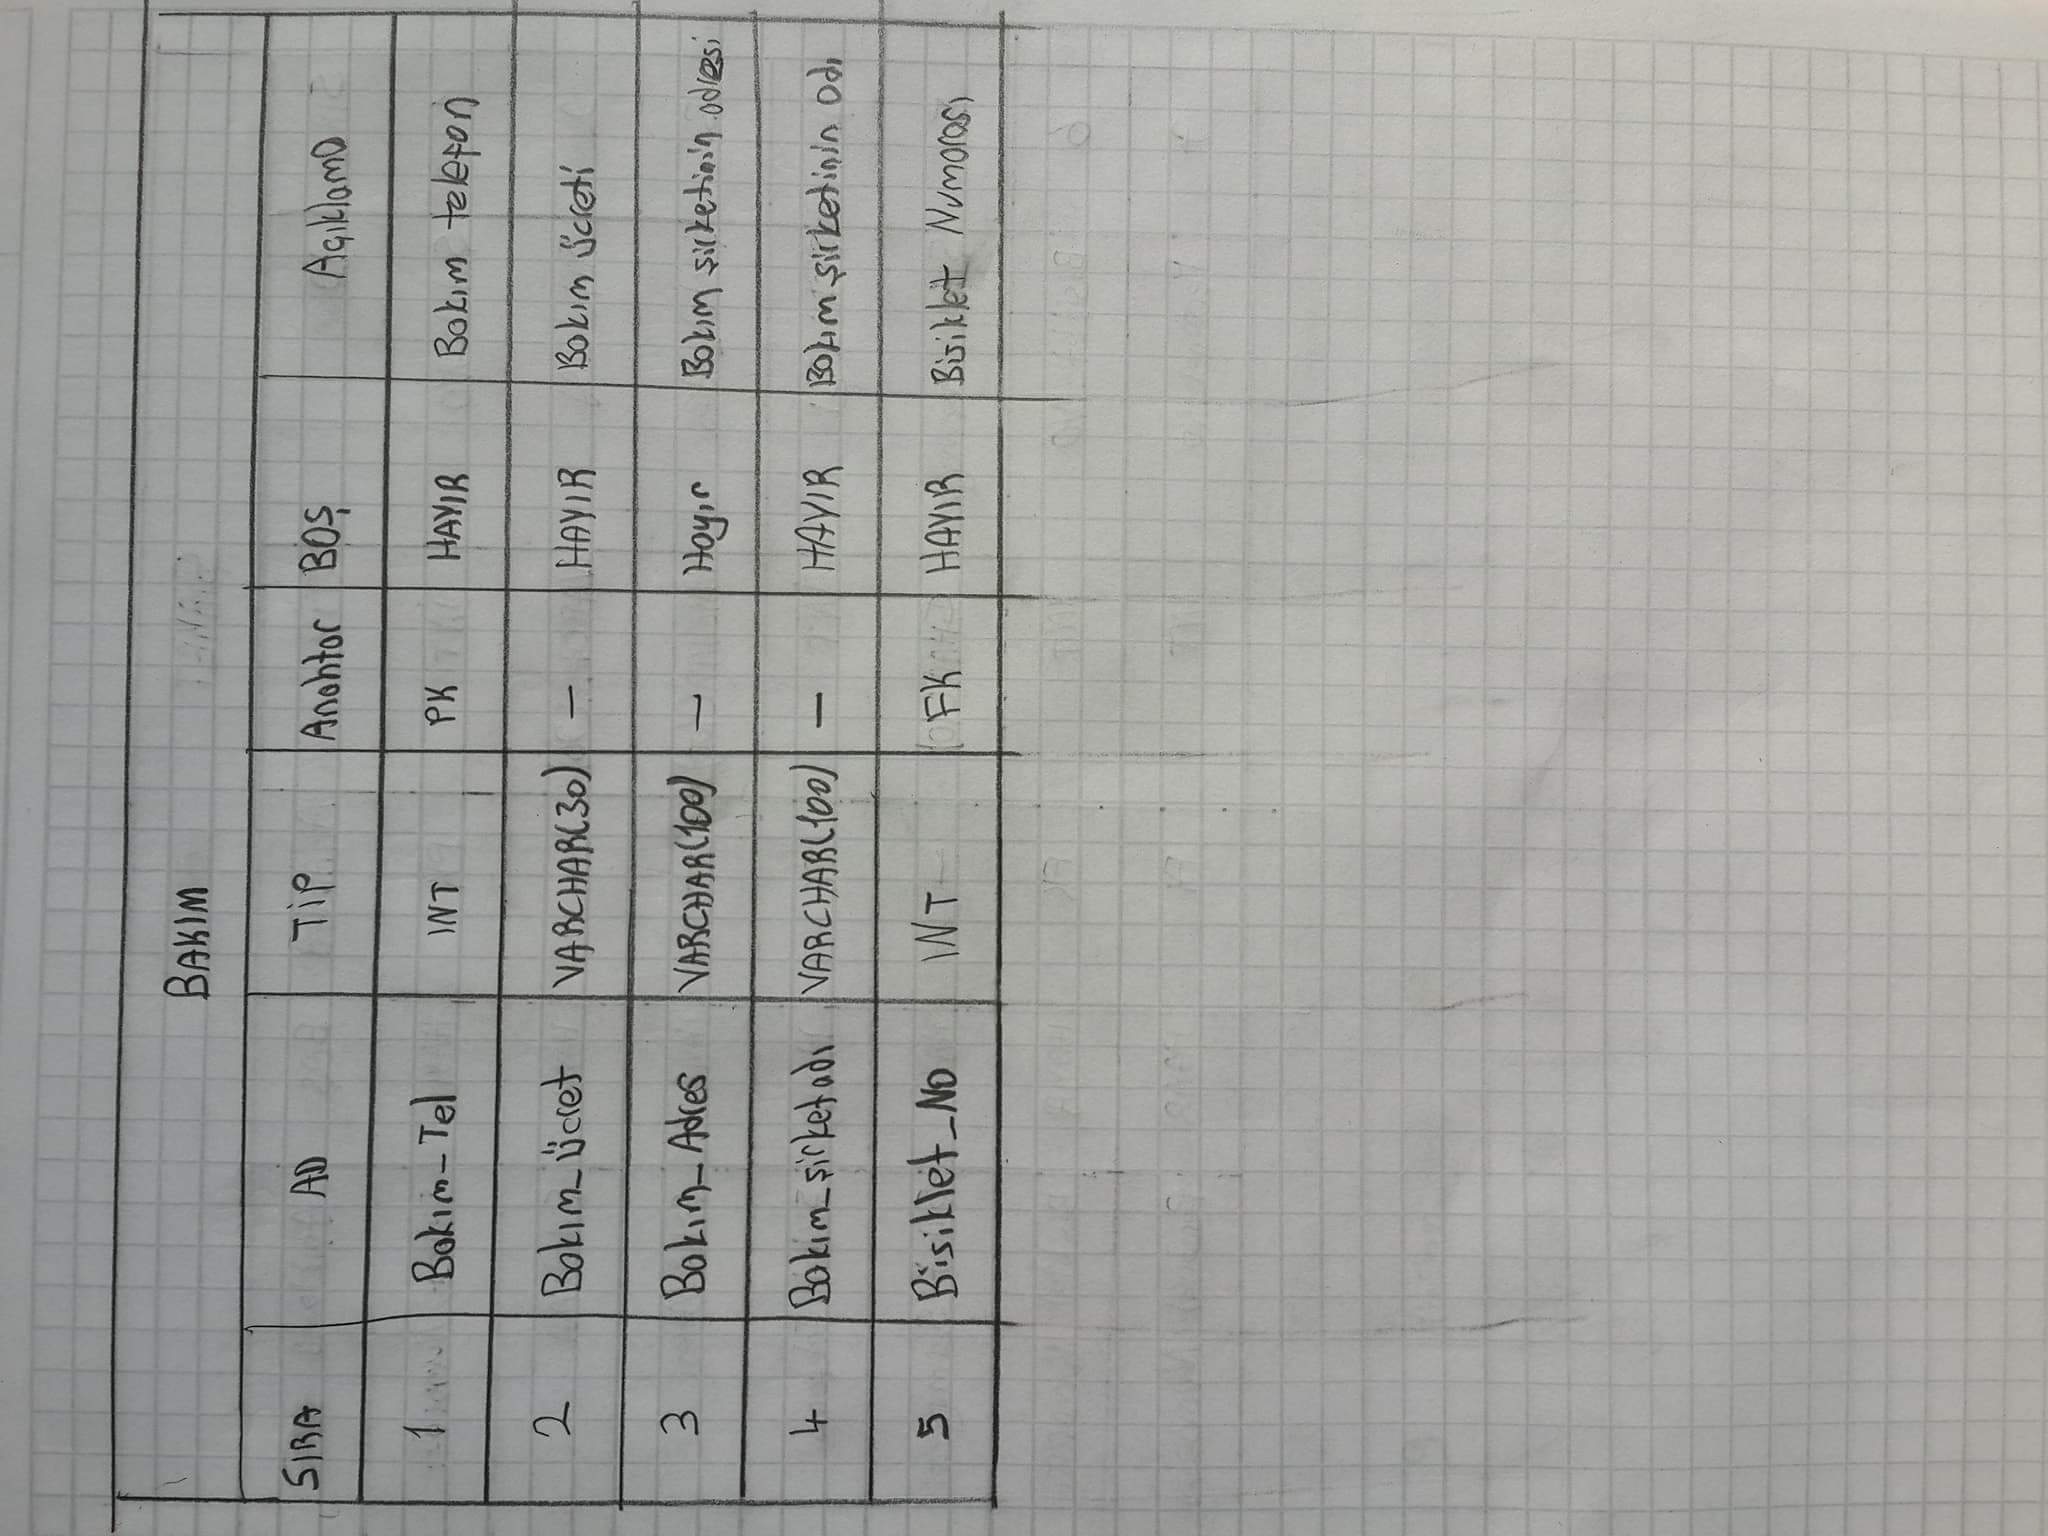 BAKIM
SIRA AD TİP Anahtar BOŞ Açıklama
1 Bakım-Tel INT PK HAYIR Bakım telefon
2 Bakım_Ücret VARCHAR(30) — HAYIR Bakım ücreti
3 Bakım_Adres VARCHAR(100) — Hayır Bakım şirketinin adresi
4 Bakım_şirketadı VARCHAR(100) — HAYIR Bakım şirketinin adı
5 Bisiklet_No INT FK HAYIR Bisiklet Numarası